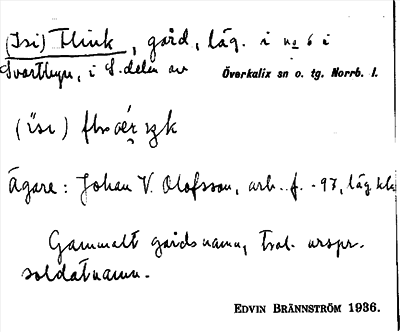 (Isi) Flink, gård, läg. i no 6 i
Svartbyn, i S. delen av Överkalix sn o. tg. Norrb. l.
Ägare: Johan V. Olofsson, arb. f. -97, läg kla
Gammalt gårdsnamn, trol. urspr.
soldatnamn.
EDVIN BRÄNNSTRÖM 1936.